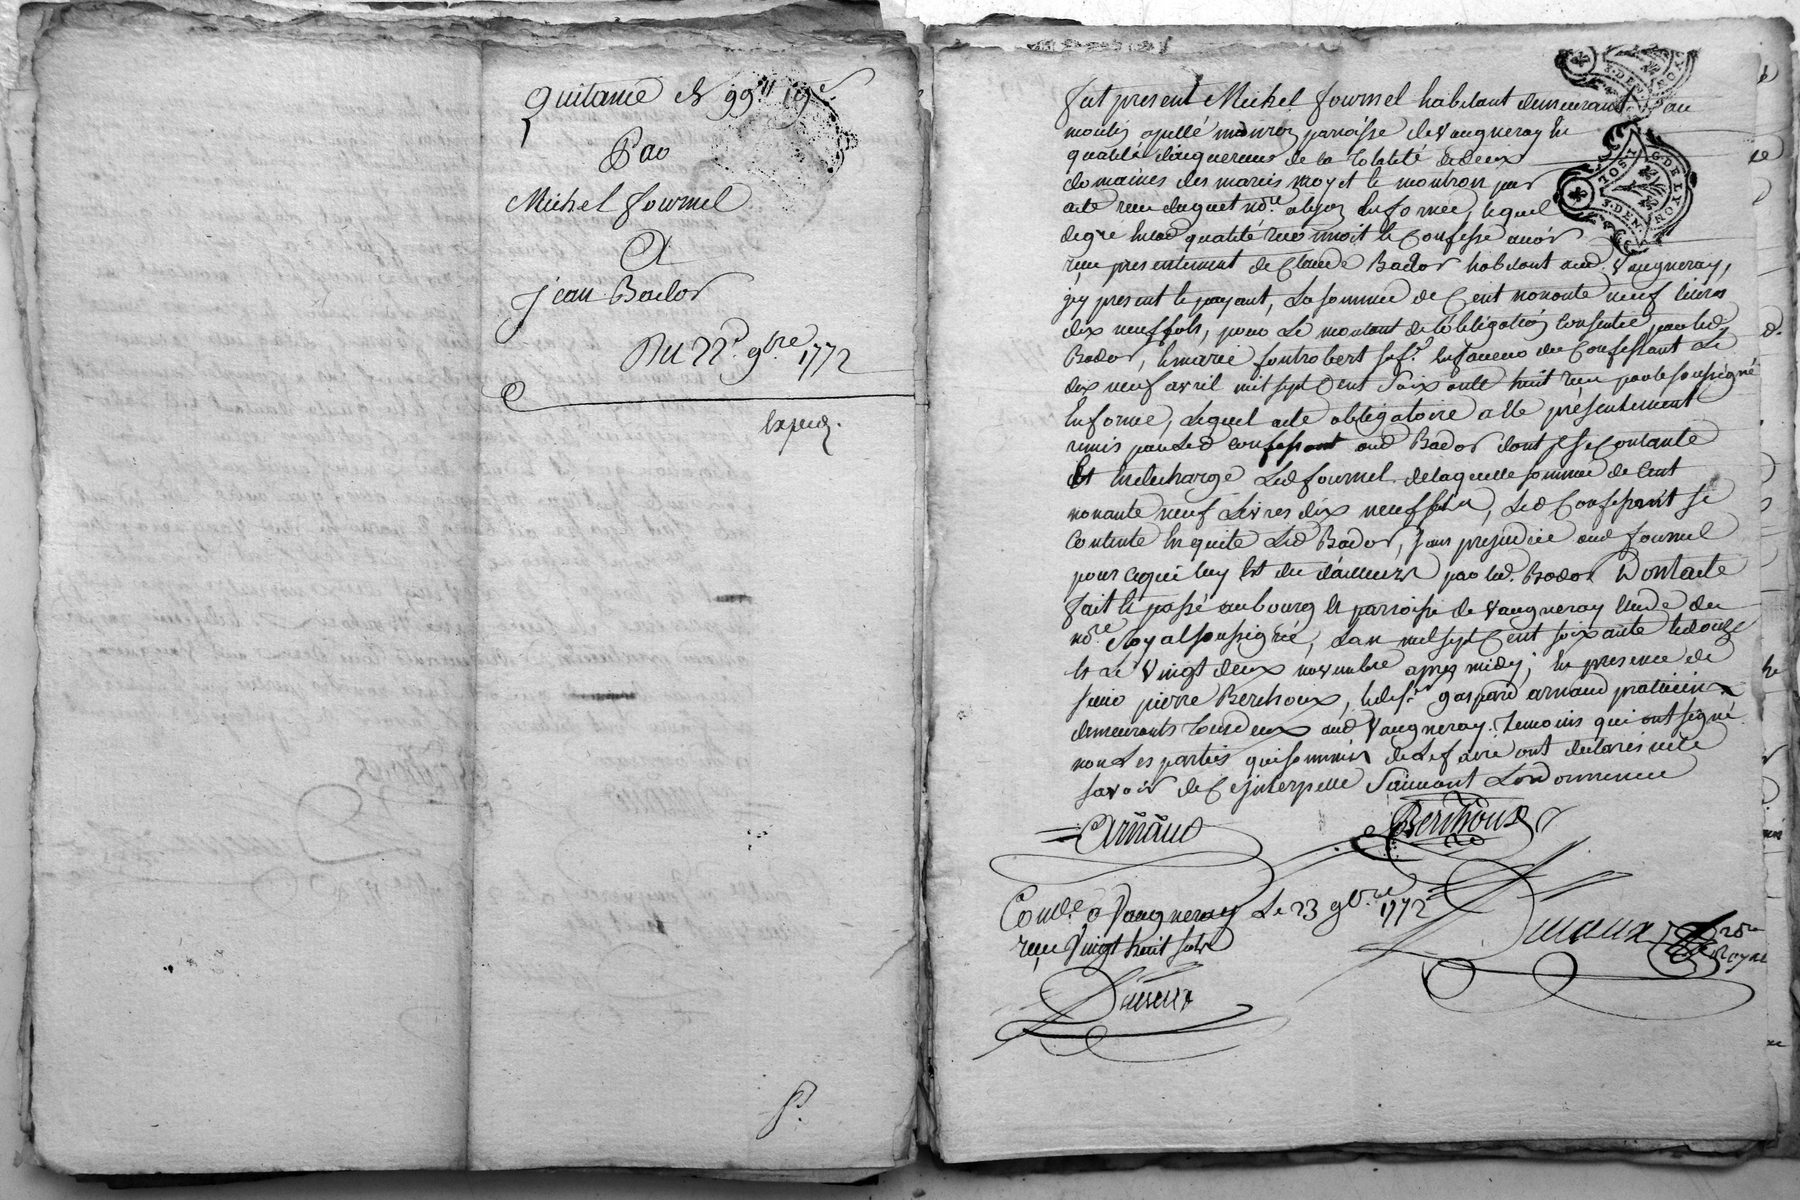 Quitance de 99ll 19s
Par
Michel fournel
A
jean Bador
Du 22e 9bre 1772
expedé.
fut present Michel fournel habitant demeurant au
moulin apellé paroisse de Vaugneray En
qualité d'acquereur de la totalité de deux
domaines des mariés moyet et montron par
acte reçu duquet nore a lyon En forme, lequel
de gre Enlad qualité reconnoit et Confesse avoir
reçu presentement de Claude Bador habitant aud. Vaugneray,
icy present et payant, La somme de Cent nonante neuf livres
dix neuf sols, pour Le montant de l'obligation Consentie par led
Bador, et marie fontrobert sa fe. En faveur du Confessant Le
dix neuf avril mil sept Cent Soixante huit reçu par le soussigné
En forme, Lequel acte obligatoire a été présentement
remis par Led confessant aud Bador dont il se Contante
Et En decharge Led fournel. de laquelle somme de Cent
nonante neuf Livres dix neuf sols, Led Confessant se
Contente En quite Led Bador, sans prejudice aud fournel
pour ce qui luy Est du d'ailleurs par led. Bador Dont acte
fait et passé au bourg et parroisse de Vaugneray Etude du
nore Royal soussigné, L'an mil sept Cent soixante et douze
et Le Vingt deux novembre apres midy, En presence de
sieur pierre Berthoux, et de sr. gaspard arnaud praticien
demeurants tous deux aud Vaugneray. temoins qui ont signé
non Les parties qui sommés de Le faire ont declaré ne le
savoir de Ce interpellé Suivant L'ordonnance
Arnaud
Berthoux
Conlé. a Vaugneray Le 23 9bre 1772
reçu Vingt huit sols
nore
royal
G. DE LYON
3. DEN.